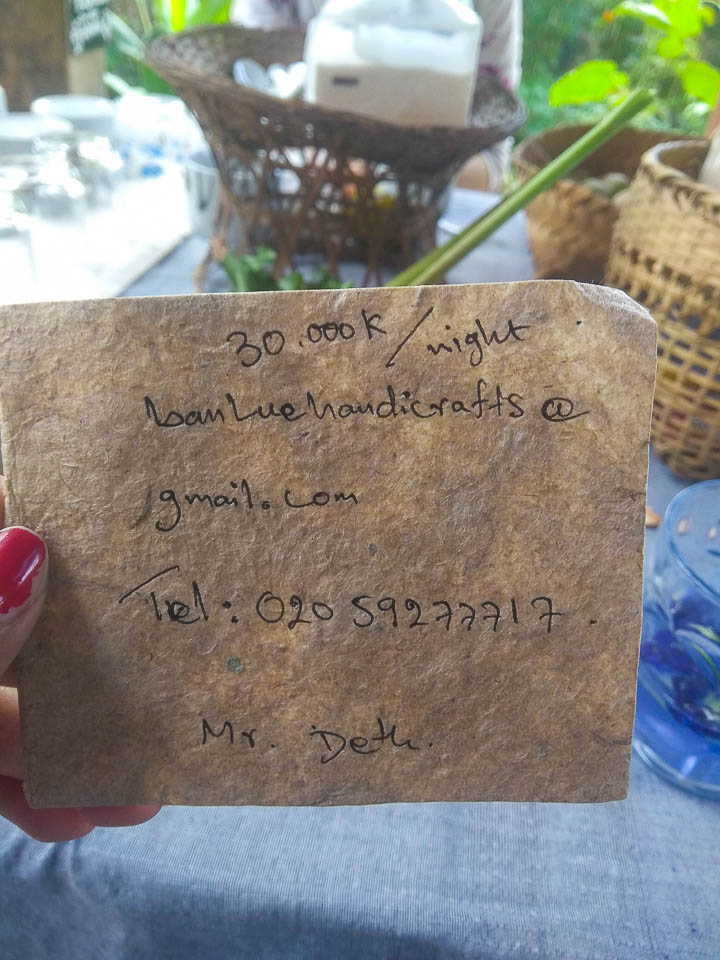 30.000K/night
banLuehandicrafts@
gmail.com
Tel: 020 59277717.
Mr. Deth.